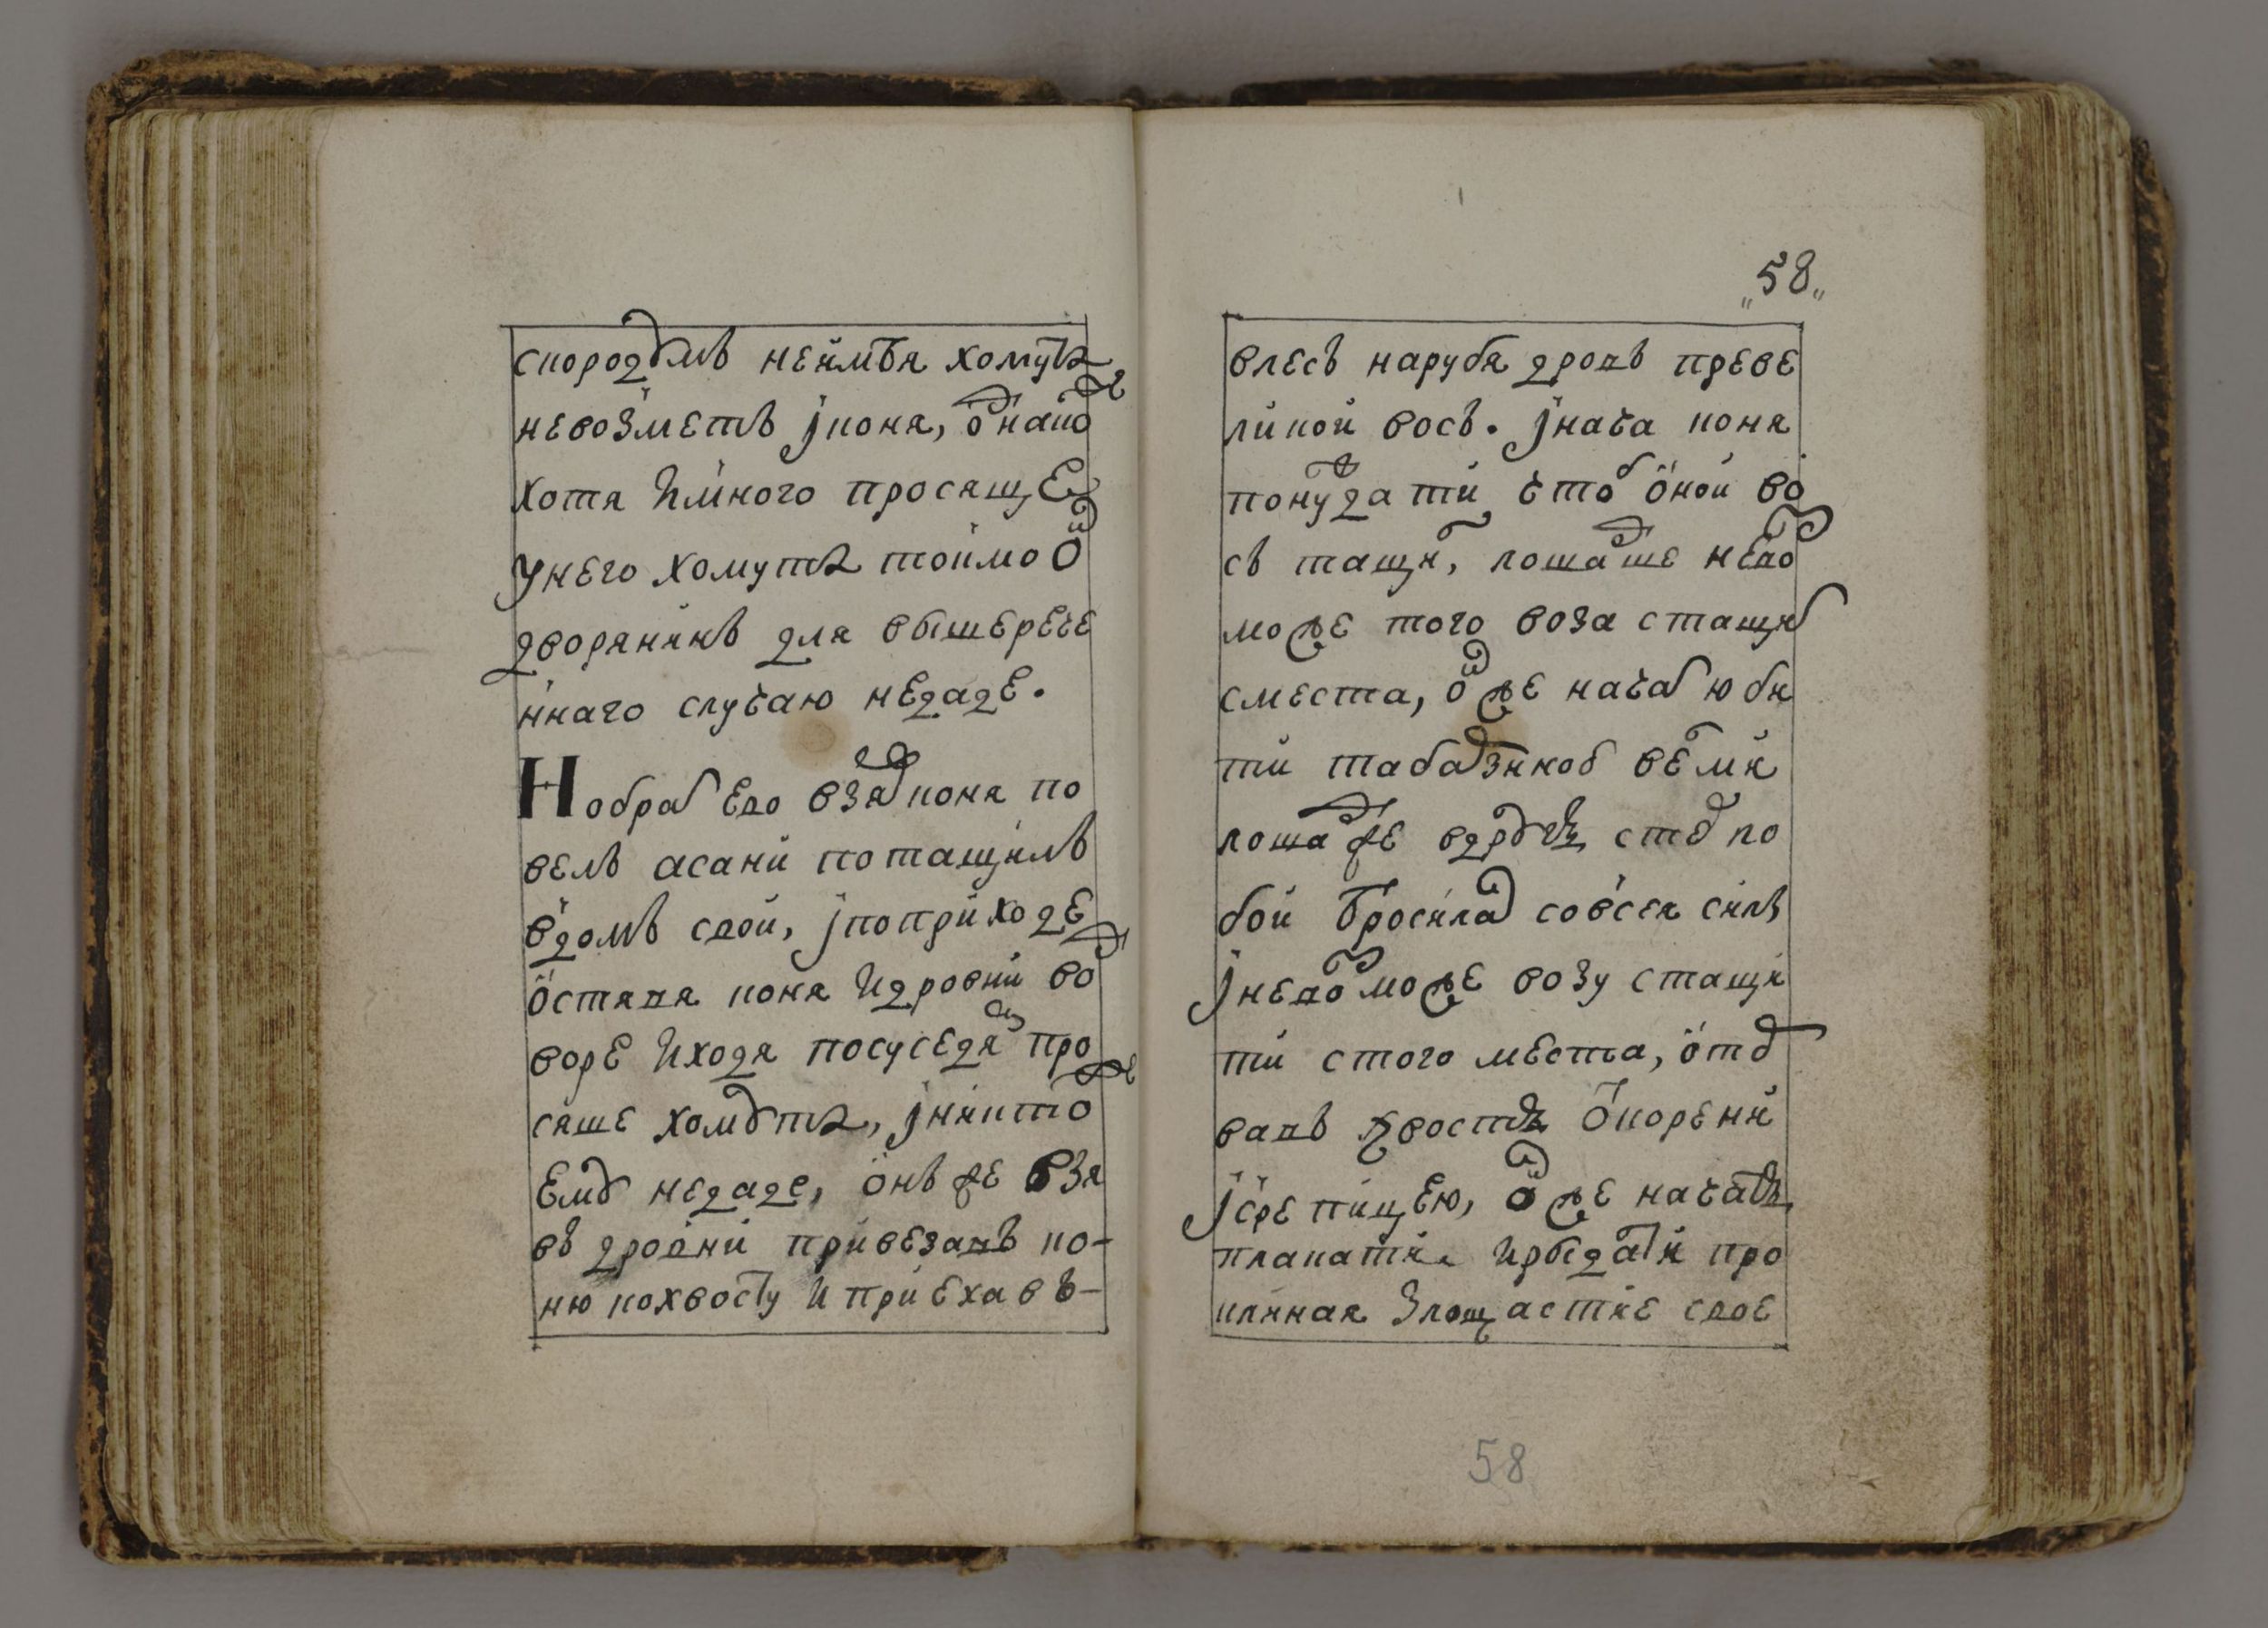 скородумъ неимѣя хомута
невозметъ їконя, однако
хотя имного просяще
унего хомута токмо он
дворянинъ для вышерече
ннаго случаю недаде.
Нобрат ево взяд коня по
велъ асани потащилъ
вдомъ свой, їпоприходе
оставя коня идровни дво
воре иходя посуседям про
сяше хомута, їникто же
ему недаде, онъ же взя
въ дровни привезавъ ко-
ню кохвосту иприехавъ-
„58„
влесъ нарубя дровъ преве
ликой возъ. їнача коня
понуждати чтоб оной во
съ тащил, лошадь ше невоз
може того воза стащит
сместа, он же начал ю би
ти табалзиков велми
лошадь же вдругъ стуко
бой бросилас совсея силъ
їневозможе возу стащи
ти стого места, оту
вавъ хвостъ окорени
їсрепицею, он же начатъ
плакати ирыдати про
клиная злощастие свое
58